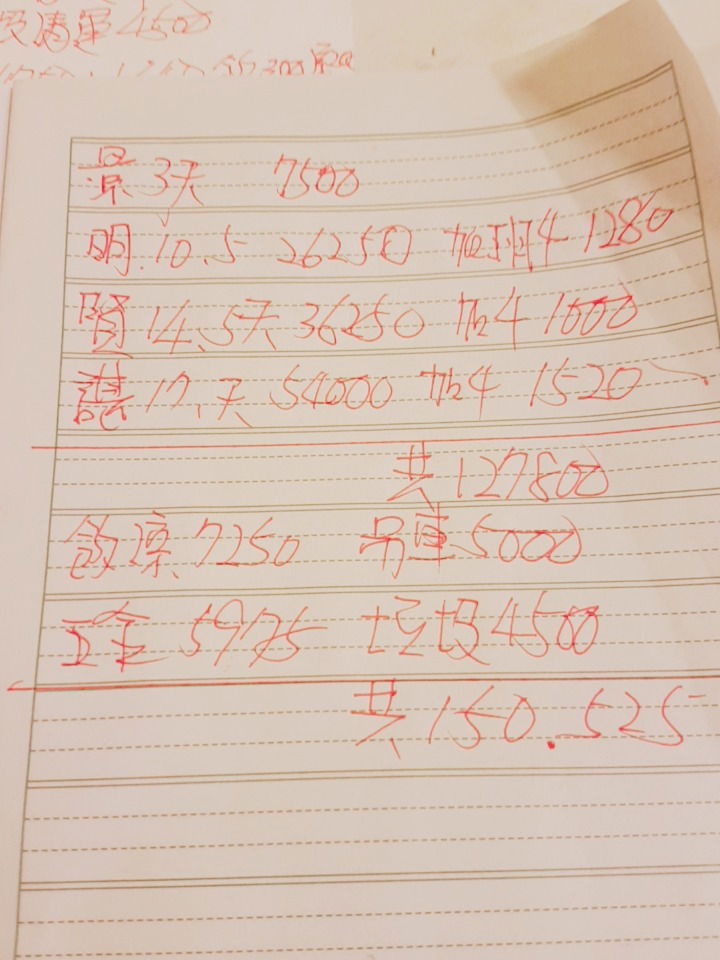 4500
景 3天 7500
明.10.5 26250 加班4 1280
賢 14.5天 36250 加4 1000
讚 17.天 54000 加4 1520
共 127800
飲涼 7250 吊車 5000
五金 5975 垃圾 4500
共 150.525